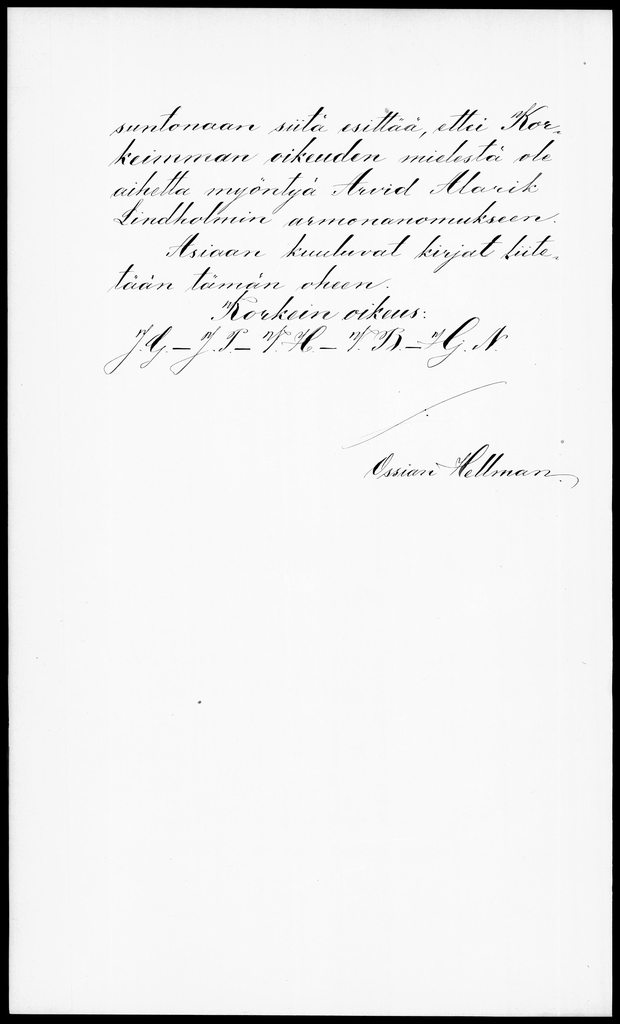 suntonaan siitä esittää, ettei Kor-
keimman oikeuden mielestä ole
aihetta myöntyä Arvid Alarik
Lindholmin armonanomukseen.
Asiaan kuuluvat kirjat liite-
tään tämän oheen.
Korkein oikeus:
J. G. – J. P. – V. H. – V. B. – H G. N.
Ossian Hellman.